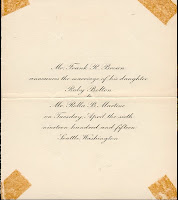 Mr. Frank H. Brown
announces the marriage of his daughter
Ruby Belton
to
Mr. Rollie B. Martine
on Tuesday April the sixth
nineteen hundred and fifteen
Seattle, Washington